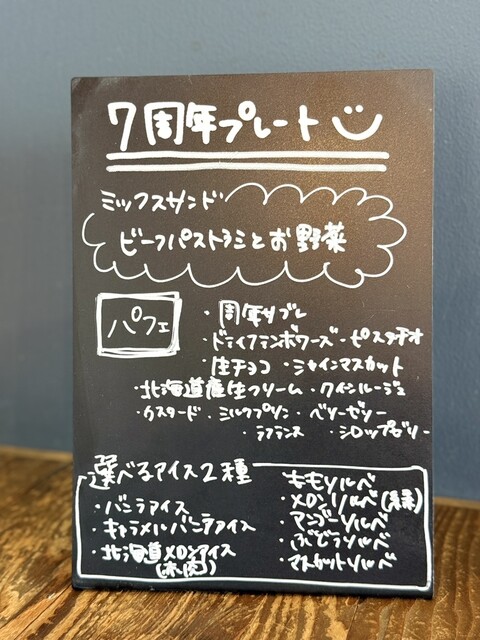 7周年プレート
ミックスサンド
ビーフパストラミとお野菜
パフェ
・周年サブレ
・ドライフランボワーズ・ピスタチオ
・生チョコ・シャインマスカット
・北海道産生クリーム・クインルージュ
・カスタード・ミルクプリン・ベリーゼリー
・ラフランス・シロップゼリー
選べるアイス2種
・バニラアイス
・キャラメルバニラアイス
・北海道メロンアイス
(赤肉)
ももソルベ
・メロンソルベ(青肉)
・マンゴーソルベ
・ぶどうソルベ
マスカットソルベ